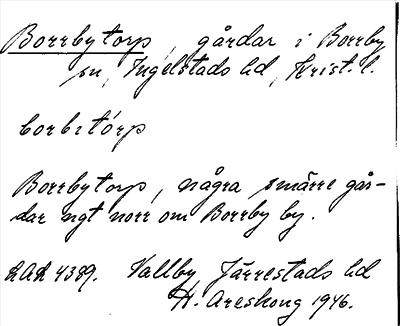 Borrbytorp, gårdar i Borrby
sn, Ingelstads hd, Krist. l.
borbɩtórp
Borrbytorp, några smärre går-
dar ngt norr om Borrby by.
LAL 4389. Vallby Järrestads hd
H. Areskoug 1946.